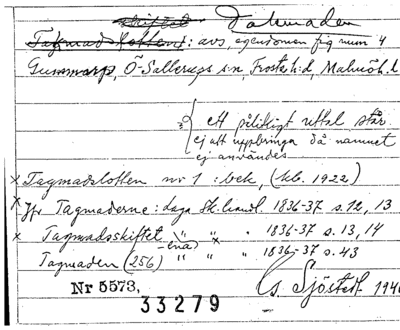 skiftet Dakmaden
Tagmadslotten: avs, egendomen fig num 4
Gummarp, Ö-Sallerups sn, Frosta hd, Malmöh. l
ett pålitligt uttal står
ej att uppbringa då namnet
ej användes
× Tagmadslotten nr 1: bek, (kb. 1922)
× Jfr Tagmaderne: laga sk. handl. 1836-37 s. 12, 13
× Tagmadsskiftet " " " 1836-37 s. 13, 14
-ena)
Tagmaden (256) " " " 1836-37 s. 43
Nr 5573,
33279
S. Sjöstedt 194